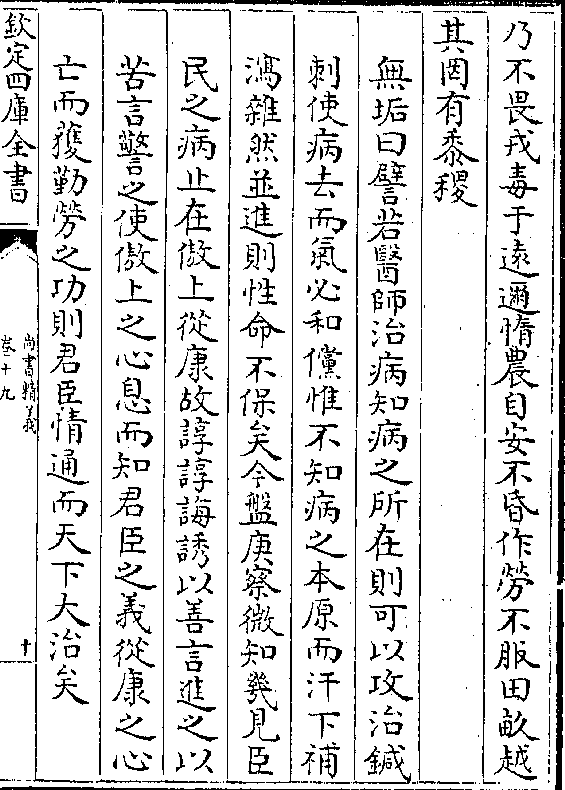 乃不畏戎毒于逺邇惰農自安不昏作勞不服田畝越
其罔有黍稷
無垢曰譬若醫師治病知病之所在則可以攻治鍼
刺使病去而氣必和儻惟不知病之本原而汗下補
瀉雜然並進則性命不保矣今盤庚察微知幾見臣
民之病止在傲上從康故諄諄誨誘以善言進之以
苦言警之使傲上之心息而知君臣之義從康之心
亡而獲勤勞之功則君臣情通而天下大治矣
欽定四庫全書
尚書精義
卷十九
十